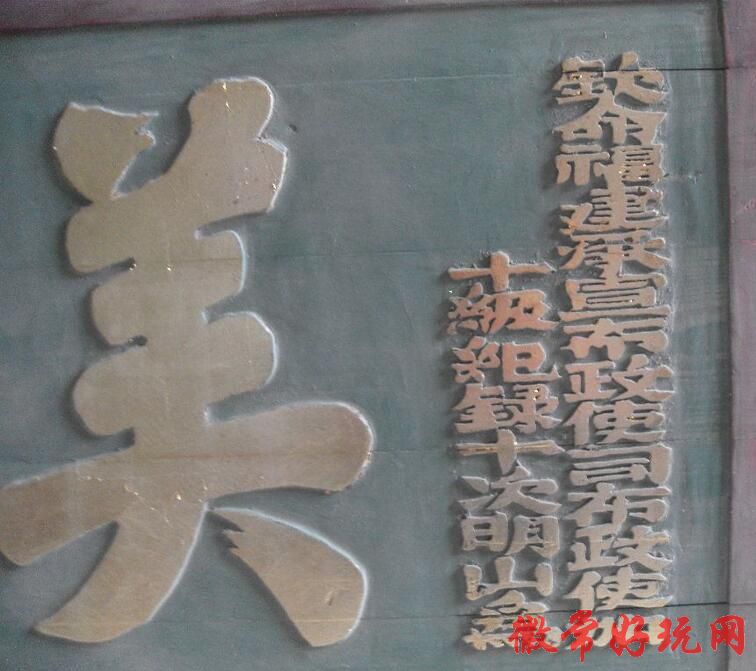 欽命福建承宣布政使司布政使加
十級紀録十次明山為
美
徽常好玩网